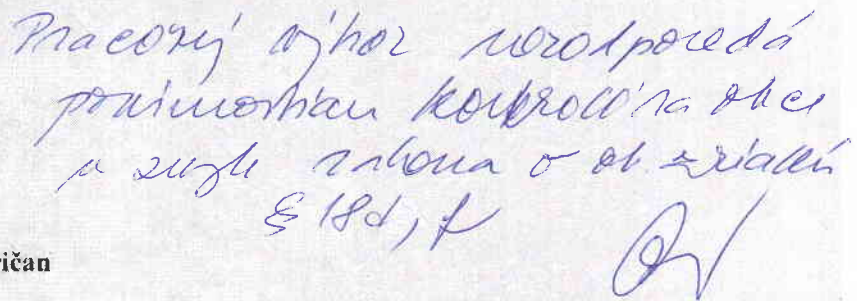 Pracovný výkaz nezodpovedá
povinnostiam kontrolóra obce
v zmysle zákona o ob. zriadení
§ 18d, f
ričan